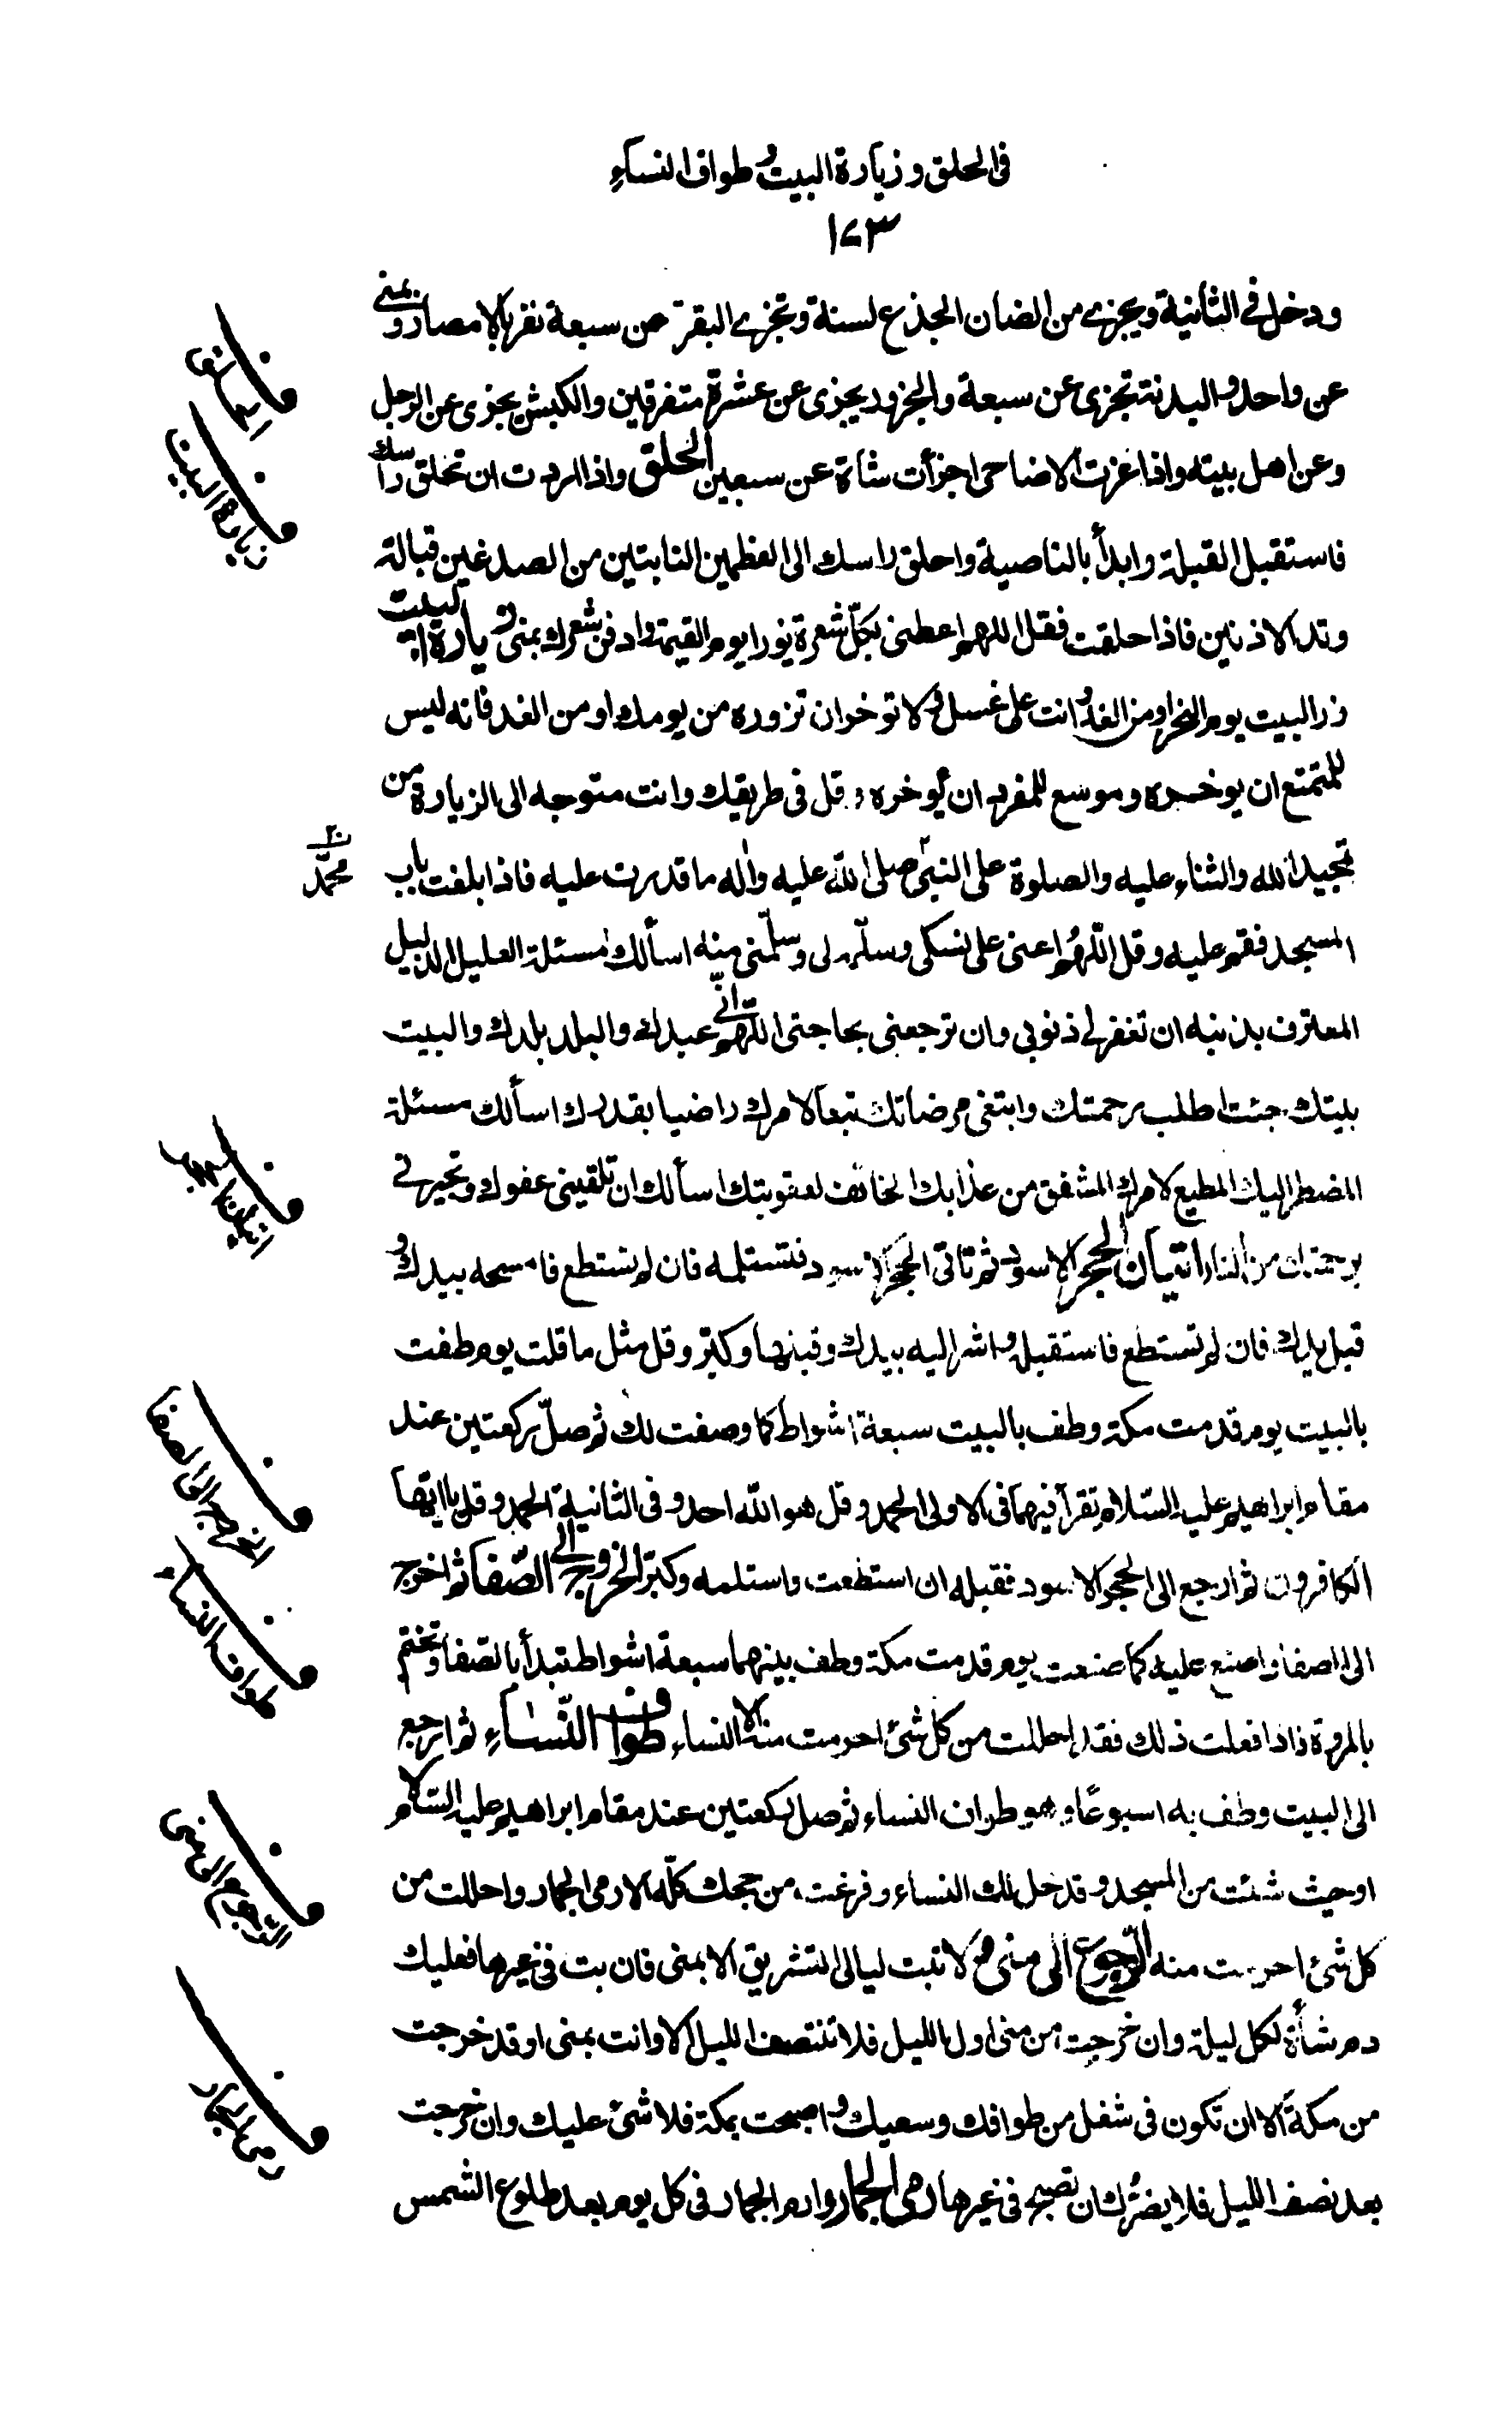 في الحلق وزيارة البيت وطواف النساء
١٧٣
ودخل في الثانية ويجزي من الضان الجذع لسنة وتجزي البقرة عن سبعة نفر بالامصار وبمنى
عن واحد والبدنة تجزى عن سبعة والجزور يجزى عن عشرة متفرقين والكبش يجزى عن الرجل
وعن اهل بيته واذا عزت الاضاحى اجزأت شاة عن سبعين الحلق واذا اردت ان تحلق راسك
فاستقبل القبلة وابدأ بالناصية واحلق راسك الى العظمين النابتين من الصدغين قبالة
وتد الاذنين فاذا حلقت فقل اللهم اعطنى بكل شعرة نورا يوم القيمة وادفن شعرك بمنى زيارة البيت
زر البيت يوم النحر او من الغد وانت على غسل ولا توخر ان تزوره من يومك او من الغد فانه ليس
للمتمتع ان يوخره وموسع للمفرد ان يوخره وقل في طريقك وانت متوجه الى الزيارة من
تمجيد الله والثناء عليه والصلوة على النبيّ صلى الله عليه واله ما قدرت عليه فاذا بلغت باب
محمّد
المسجد فقم عليه وقل اللّهم اعنى على نسكى وسلّمه لى وسلّمنى منه اسألك مسئلة العليل الذليل
المعترف بذنبه ان تغفر لي ذنوبي وان ترجعنى بحاجتى اللّهم انّي عبدك والبلد بلدك والبيت
بيتك جئت اطلب رحمتك وابتغى مرضاتك متبعا لامرك راضيا بقدرك اسألك مسئلة
المضطر اليك المطيع لامرك المشفق من عذابك الخائف لعقوبتك اسألك ان تلقينى عفوك وتجيرني
برحمتك من النار اتيان الحجر الاسود ثم تاتى الحجر الاسود فتستلمه فان لم تستطع فامسحه بيدك و
قبل يدك فان لم تستطع فاستقبله واشر اليه بيدك وقبلها وكبّر وقل مثل ما قلت يوم طفت
بالبيت يوم قدمت مكة وطف بالبيت سبعة اشواط كما وصفت لك ثم صلّ ركعتين عند
مقام ابراهيم عليه السّلام تقرأ فيهما في الاولى الحمد وقل هو اللّه احد وفى الثانية الحمد وقل يا ايّها
الكافرون ثم ارجع الى الحجر الاسود فقبله ان استطعت واستلمه وكبّر الخروج الى الصّفا ثم اخرج
الى الصفا واصنع عليه كما صنعت يوم قدمت مكة وطف بينهما سبعة اشواط تبدأ بالصّفا وتختم
بالمروة فاذا فعلت ذلك فقد احللت من كل شئ احرمت منه الا النساء طواف النّساء ثم ارجع
الى البيت وطف به اسبوعًا وهو طواف النساء ثم صل ركعتين عند مقام ابراهيم عليه السّلام
او حيث شئت من المسجد وقد حل لك النساء وفرغت من حجك كلّه الا رمى الجمار واحللت من
كل شئ احرمت منه الرّجوع الى منى ولا تبت ليالى التشريق الا بمنى فان بت في غيرها فعليك
دم شاة لكل ليلة وان خرجت من منى اول الليل فلا تنتصف الليل الا وانت بمنى او قد خرجت
من مكة الا ان تكون في شغل من طوافك وسعيك واصبحت بمكة فلا شئ عليك وان خرجت
بعد نصف الليل فلا يضرّك ان تصبح في غيرها رمى الجمار وارم الجمار فى كل يوم بعد طلوع الشمس
في الحلق
في زيارة البيت
في اتيان الحجر
في الخروج الى الصفا
في طواف النساء
في الرجوع الى منى
في رمى الجمار